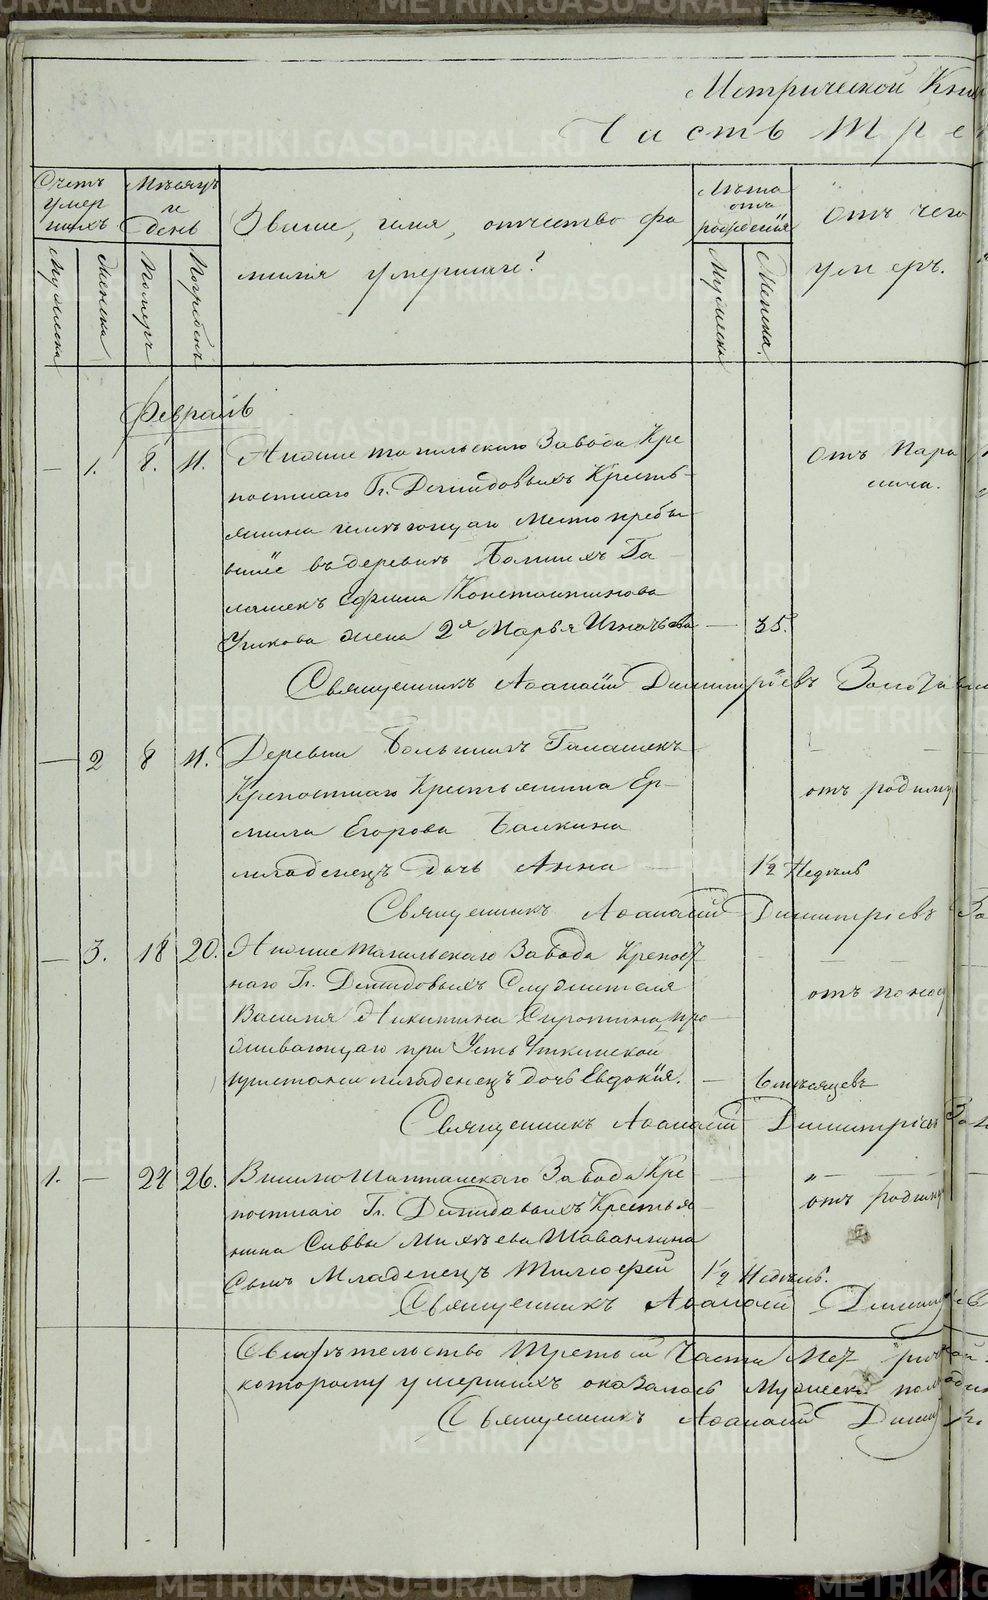 Метрической Кни
Часть Тре
Счетъ умер шихъ
Мѣсяцъ и день
Званіе, имя, отчество фа
милія умершаго?
Лѣта отъ рожденія
Отъ чего
умеръ.
Мужеска
Женска
Померъ
Погребенъ
Мужеска
Женска.
Февраль
1. 8. 11. Нижне тагильскаго Завода Кре
постнаго Гг. Демидовыхъ Кресть-
янина имѣющаго Место пребы
ваніе въ деревнѣ Большихъ Га
лашекъ Ефима Константинова
жена 2я Марья Игнатьева — 35.
Отъ Пара
лича.
Священникъ Аѳанасій Димитріевъ
2 8 11. Деревни Большихъ Галашекъ
Крепостнаго Крестьянина Ер-
мила Егорова Балкина
младенецъ дочь Анна — 1½ Недѣль
отъ родимц
Священникъ Аѳанасій Димитріевъ За
3. 18 20. Нижне Тагильскаго Завода Крепост
наго Гг. Демидовыхъ Служителя
Василія Никитина Сиротина, про
живающаго при Усть Уткинской
пристани младенецъ дочь Евдокія. — 6 мѣсяцевъ
отъ поноса
Священникъ Аѳанасій Димитріевъ
1. — 24 26. Висимошайтанскаго Завода Кре
постнаго Гг. Демидовыхъ Крестья
нина Саввы Михѣева
Сынъ Младенецъ Тимоѳей 1½ Недѣль.
отъ родимц
Священникъ Аѳанасій Димит
Свидѣтельство Третьей Части Мет рич
которому умершихъ оказалось Мужеска пола
Священникъ Аѳанасій Димит
METRIKI.GASO-URAL.RU